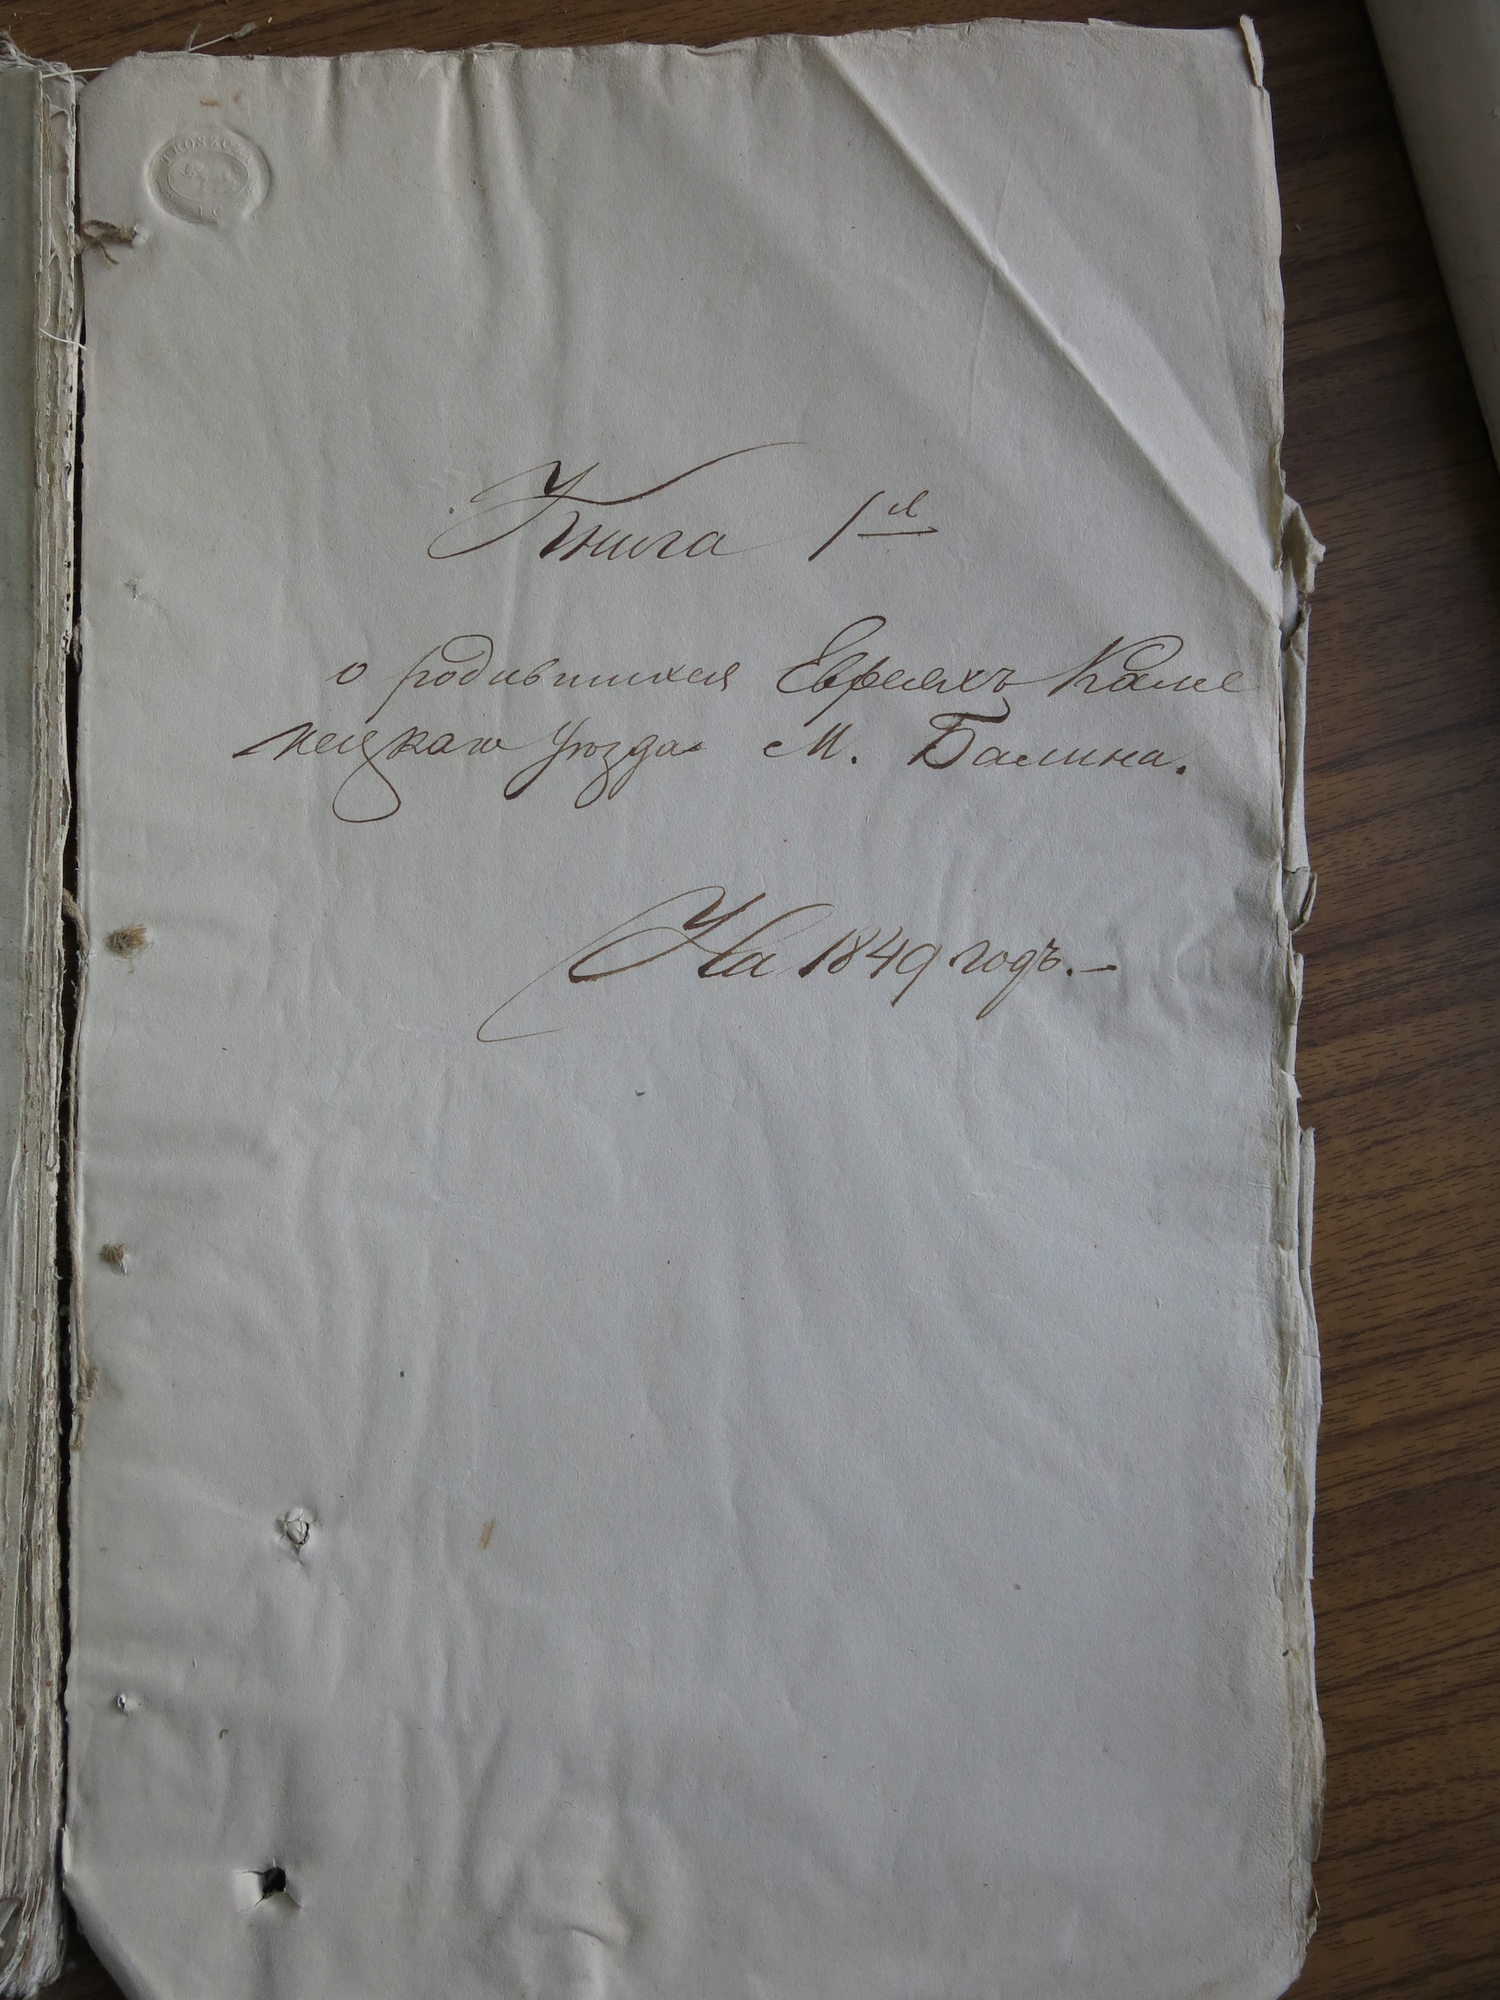 TROSZCZA
Книга 1я
о родившихся Евреяхъ Каме
нецкаго Уѣзда М. Балина.
На 1849 годъ.—